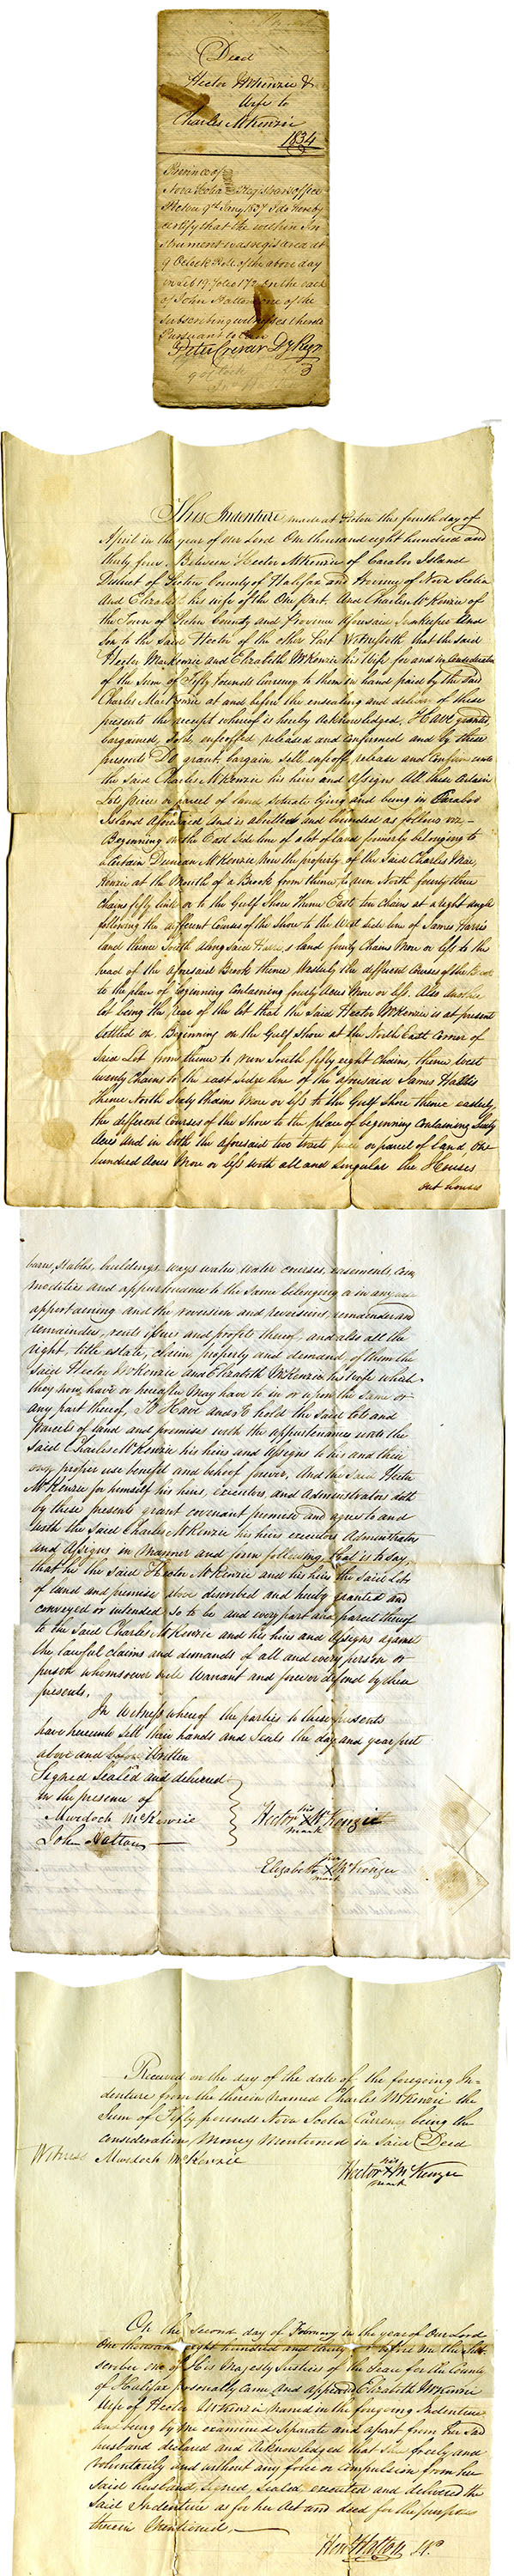 Deed
Hector McKenzie &
Wife to
Charles McKenzie
1834
Province of
Nova Scotia Registrars office
Pictou 9th Jany 1837 I do hereby
certify that the within In
strument was registered at
9 OClock A.M. of the above day
in Lib 19 folio 172 on the oath
of John Hatton one of the
subscribing witnesses thereto
Pursuant to Law
Peter Crerar Dy Regr
This Indenture made at Pictou this fourth day of
April in the year of our Lord One thousand eight hundred and
thirty four. Between Hector McKenzie of Carabou Island
District of Pictou County of Halifax and Province of Nova Scotia
And Elizabeth his wife of the One part. And Charles McKenzie of
the Town of Pictou County and Province aforesaid Innkeeper And
Son to the said Hector of the other Part Witnesseth that the said
Hector MacKenzie and Elizabeth McKenzie his Wife for and in Consideration
of the Sum of Fifty pounds Currency to them in hand paid by the said
Charles MacKenzie at and before the ensealing and delivery of these
presents the receipt whereof is hereby Acknowledged, Have granted
bargained, sold, enfeoffed, released and confirmed and by these
presents Do grant, bargain, sell, enfeoff, release and Confirm unto
the said Charles McKenzie his heirs and Assigns All these Certain
Lots pieces or parcel of land Situate lying and being in Carabou
Island Aforesaid and is abutted and bounded as follows viz -
Beginning on the East Side line of a lot of land formerly belonging to
a Certain Duncan McKenzie Now the property of the Said Charles Mac
Kenzie at the Mouth of a Brook from thence to run North fourty three
Chains fifty links or to the Gulf Shore Thence East, ten Chains at a right angle
following the different Courses of the Shore to the West side line of James Harris
land thence South along Said Harris,s land fourty Chains More or less to the
head of the aforesaid Brook thence Westerly the different Courses of the Brook
to the place of beginning Containing fourty Acres More or less. Also another
lot being the rear of the lot that the Said Hector McKenzie is at present
Settled on. Beginning on the Gulf Shore at the North East Corner of
Said Lot from thence to run South fifty eight Chains, thence West
twenty Chains to the east side line of the aforesaid James Harris
thence North Sixty Chains More or less to the Gulf Shore thence easterly
the different Courses of the Shore to the place of beginning Containing Sixty
Acres and in both the aforesaid two tracts piece or parcel of land, One
hundred Acres More or less with all and Singular the Houses
out houses
barns, stables, buildings ways waters, water courses, easements, Com
modities and appurtenances to the Same belonging or in any wise
appertaining and the reversion and reversions, remainder and
remainders, rents issues and profits thereof, and also all the
right, title estate, claim, property and demand of them the
Said Hector McKenzie and Elizabeth McKenzie his Wife which
they now have or hereafter May have to in or upon the Same or
any part thereof, To Have and to hold the Said lots and
parcels of land and premises with the appurtenances unto the
Said Charles McKenzie his heirs and Assigns to his and their
only proper use benefit and behoof forever. And the Said Hector
McKenzie for himself his heirs, executors, and Administrators doth
by these presents grant covenant promise and agree to and
with the Said Charles McKenzie his heirs executors Administrators
and Assigns in Manner and form following, that is to Say,
that he the Said Hector McKenzie and his heirs the Said Lots
of land and premises above described and hereby granted and
conveyed or intended so to be and every part and parcel thereof
to the Said Charles McKenzie and his heirs and Assigns against
the lawful claims and demands of all and every person or
persons whomsoever will Warrant and forever defend by these
presents.
In Witness whereof the parties to these presents
have hereunto Sett their hands and Seals the day and year first
above and before Written
Signed Sealed and delivered
in the presence of
Murdoch McKenzie
John Hatton
Hector his X mark McKenzie
Elizabeth her X mark McKenzie
Received on the day of the date of the foregoing In=
denture from the therein Named Charles McKenzie the
Sum of Fifty pounds Nova Scotia Currency being the
consideration Money Mentioned in Said Deed
Witness Murdoch McKenzie
Hector his X mark McKenzie
On the Second day of February in the year of Our Lord
One thousand eight hundred and thirty before Me the Sub-
scriber one of His Majestys Justices of the Peace for the County
of Halifax personally Came and Appeared Elizabeth McKenzie
Wife of Hector McKenzie Named in the foregoing Indenture
and being by Me examined Separate and apart from her Said
husband declared and Acknowledged that She freely and
Voluntarily and without any force or compulsion from her
Said husband Signed, Sealed, executed and delivered the
Said Indenture as for her Act and deed for the purposes
therein Mentioned.
Heny Hatton J.P.